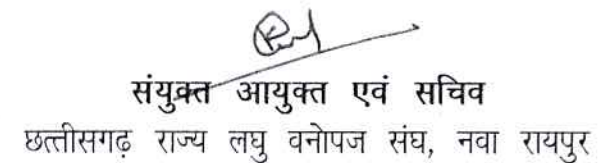 संयुक्त आयुक्त एवं सचिव
छत्तीसगढ़ राज्य लघु वनोपज संघ, नवा रायपुर